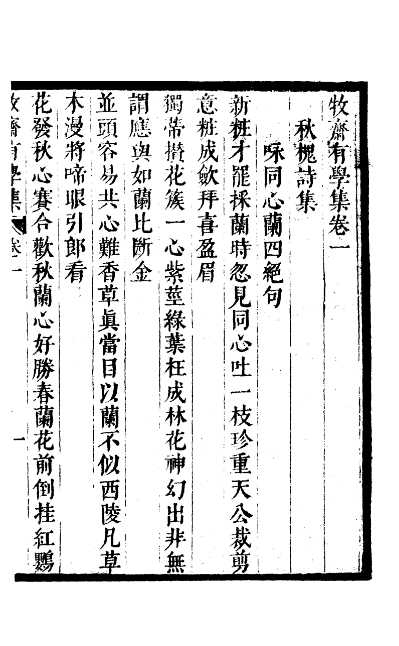 牧齋有學集卷一
秋槐詩集
咏同心蘭四絕句
新粧才罷採蘭時忽見同心吐一枝珍重天公裁剪
意粧成歛拜喜盈眉
獨蒂攢花簇一心紫莖綠葉枉成林花神幻出非無
謂應與如蘭比斷金
並頭容易共心難香草眞當目以蘭不似西陵凡草
木漫將啼眼引郎看
花發秋心賽合歡秋蘭心好勝春蘭花前倒挂紅鸚
牧齋有學集 卷一 一